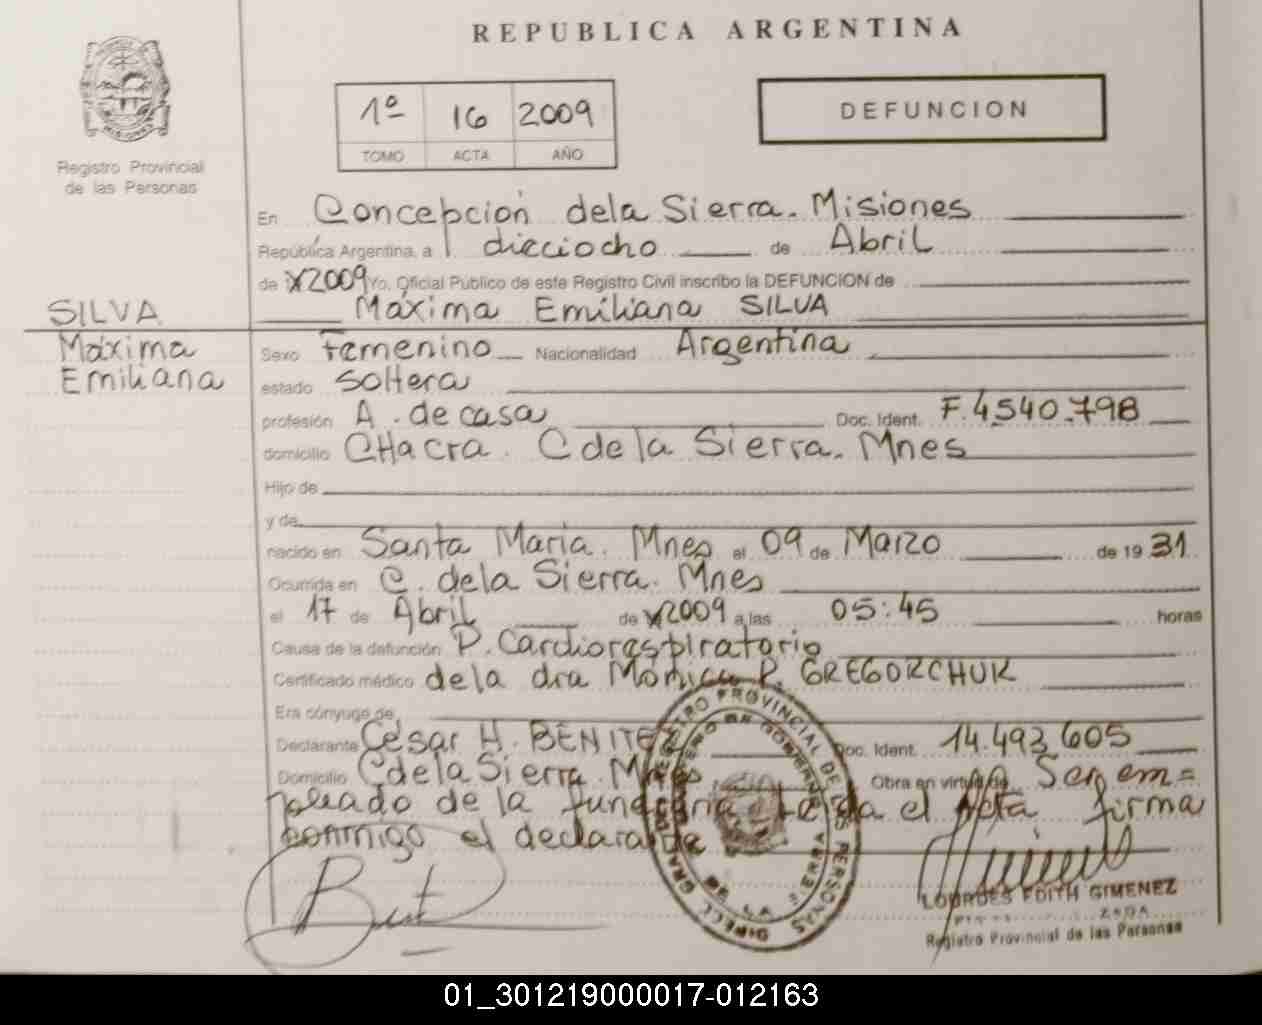 REPUBLICA ARGENTINA
1º 16 2009
TOMO ACTA AÑO
DEFUNCION
MISIONES
Registro Provincial
de las Personas
En Concepción dela Sierra. Misiones
República Argentina, a dieciocho de Abril
de 2009 Yo, Oficial Público de este Registro Civil inscribo la DEFUNCION de
SILVA
Máxima Emiliana SILVA
Máxima
Emiliana
Sexo Femenino Nacionalidad Argentina
estado Soltera
profesión A. de casa Doc. Ident. F.4540.798
domicilio CHacra. C dela Sierra. Mnes
Hijo de
y de
nacido en Santa Maria. Mnes el 09 de Marzo de 19 31
Ocurrida en C. dela Sierra. Mnes
el 17 de Abril de 2009 a las 05:45 horas
Causa de la defunción P. Cardiorespiratorio
Certificado médico dela dra Monica P. GREGORCHUK
Era cónyuge de
Declarante César H. BENITE Doc. Ident. 14.493.605
Domicilio C dela Sierra. Mnes Obra en virtud de Ser em=
pleado de la funeraria Leida el Acta firma
conmigo el declarante
REGISTRO PROVINCIAL DE LAS PERSONAS
LOURDES EDITH GIMENEZ
Registro Provincial de las Personas
01_301219000017-012163